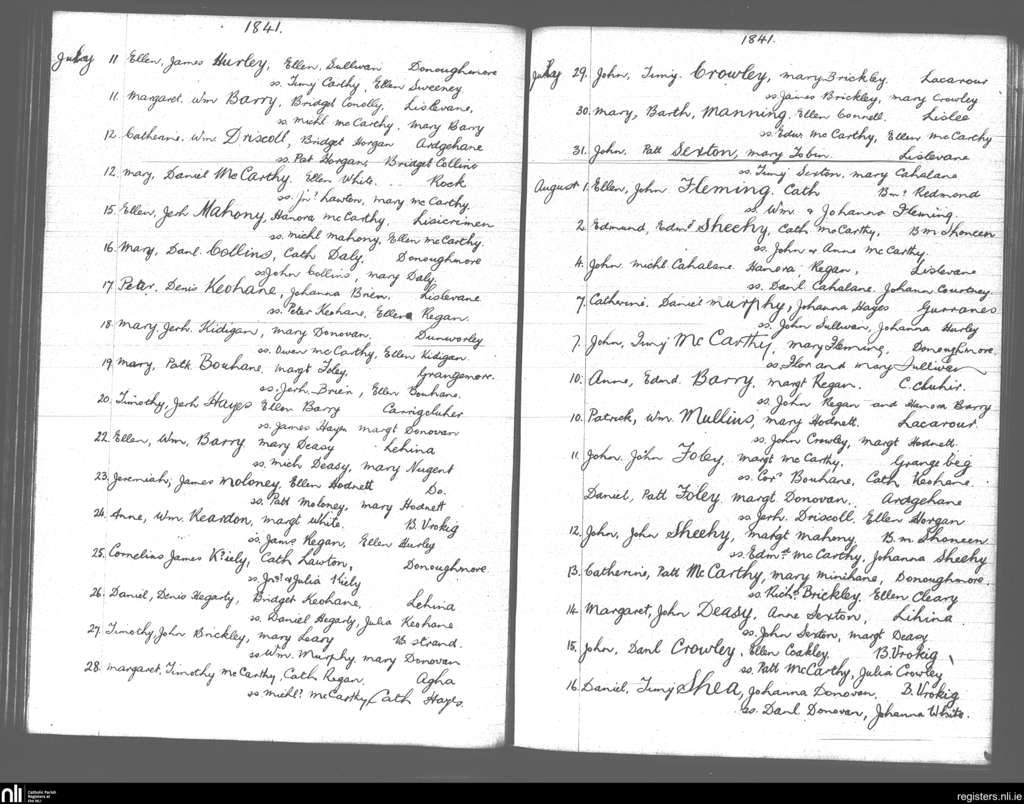 1841.
July 11 Ellen, James Hurley, Ellen Sullivan Donoughmore
ss. Timy Carthy, Ellen Sweeney.
11. Margaret. Wm Barry, Bridget Conolly, Lislevane,
ss. Michl McCarthy. Mary Barry
12. Catherine. Wm. Driscoll, Bridget Horgan Ardgehane
ss. Pat Horgan, Bridget Collins
12. Mary, Daniel McCarthy. Ellen White. Rock
ss. Jno. Lawton, Mary McCarthy.
15. Ellen, Jerh Mahony, Hanora McCarthy. Lisicrimen
ss. Michl Mahony, Ellen McCarthy.
16. Mary, Danl. Collins, Cath Daly. Donoughmore
ss John Collins, Mary Daly
17 Peter. Denis Keohane, Johanna Brien. Lislevane
ss. Peter Keohane, Ellen Regan.
18. Mary, Jerh. Kidigan, Mary Donovan. Dunworley
ss. Owen McCarthy, Ellen Kidigan.
19. Mary, Patk Bouhane, Margt Foley, Grangemore.
ss. Jerh. Brien, Ellen Bouhane.
20. Timothy, Jerh Hayes Ellen Barry Carrigcluher
ss. James Hayes Margt Donovan
22. Ellen, Wm. Barry Mary Deasy Lehina
ss. Mich Deasy, Mary Nugent
23. Jeremiah, James Moloney, Ellen Hodnett Do.
ss. Patt Moloney, Mary Hodnett
24. Anne, Wm. Reardon, Margt White. B. Vrokig
ss. James Regan, Ellen Hurley
25. Cornelius James Kiely, Cath Lawton, Donoughmore
ss. Jno. & Julia Kiely
26. Daniel, Denis Hegarty, Bridget Keohane, Lehina
ss. Daniel Hegarty, Julia Keohane
27. Timothy, John Brickley, Mary Leary B strand.
ss Wm. Murphy. Mary Donovan
28. Margaret, Timothy McCarthy, Cath Regan. Agha
ss. Michl. McCarthy, Cath Hayes.
1841.
July 29. John, Timy. Crowley, Mary Brickley. Lacarour
ss. James Brickley, Mary Crowley
30. Mary, Barth, Manning. Ellen Connell. Lislee
ss. Edwd McCarthy, Ellen McCarthy
31. John. Patt Sexton, Mary Tobin. Lislevane
ss. Timy Sexton, Mary Cahalane
August 1. Ellen, John Fleming. Cath Redmond
ss. Wm. & Johanna Fleming.
2. Edmund, Edmd Sheehy, Cath McCarthy, B m Shoneen
ss. John & Anne McCarthy.
4. John. Michl Cahalane. Hanora Regan, Lislevane
ss. Danl Cahalane. Johann Courtney.
7. Catherine. Daniel Murphy, Johanna Hayes Gurranes
ss. John Sullivan, Johanna Hurley
7. John, Timy McCarthy, Mary Fleming. Donoughmore.
ss. Flor and Mary Sullivan
10. Anne, Edmd. Barry, Margt Regan. C. cluhir.
ss. John Regan and Hanora Barry
10. Patrick, Wm. Mullins, Mary Hodnett. Lacarour.
ss. John Crowley, Margt Hodnett.
11. John. John Foley, Margt McCarthy. Grange beg
ss. Cors Bouhane, Cath Keohane.
Daniel, Patt Foley, Margt Donovan. Ardgehane
ss Jerh. Driscoll. Ellen Horgan
12. John, John Sheehy, Margt Mahony, B. m Shoneen
ss. Edmd. McCarthy, Johanna Sheehy
13. Catherine, Patt McCarthy, Mary Minihane, Donoughmore.
ss. Richd Brickley. Ellen Cleary
14. Margaret, John Deasy, Anne Sexton, Lihina.
ss. John Sexton, Margt Deasy
15. John, Danl Crowley, Ellen Coakley. B. Vrokig
ss. Patt McCarthy, Julia Crowley
16. Daniel, Timy Shea, Johanna Donovan. B. Vrokig
ss. Danl Donovan, Johanna White.
nli Catholic Parish Registers at the NLI
registers.nli.ie